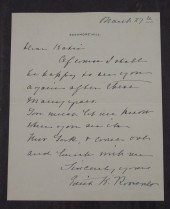 March 27th
Dear Madam
Of course I shall
be happy to see you
again after these
many years.
You must let me know
when you are in
New York, & come out
and lunch with me
Sincerely yours
Edith K. Roosevelt